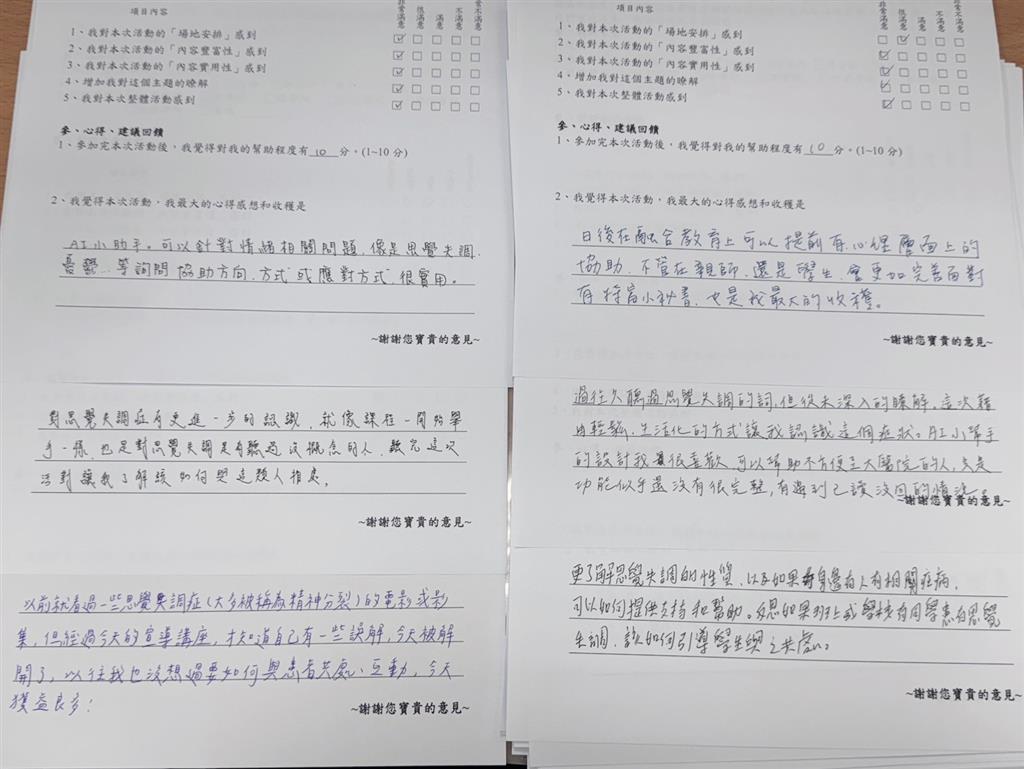 項目內容
非常滿意
很滿意
滿意
不滿意
非常不滿意
1、我對本次活動的「場地安排」感到
2、我對本次活動的「內容豐富性」感到
3、我對本次活動的「內容實用性」感到
4、增加我對這個主題的瞭解
5、我對本次整體活動感到
參、心得、建議回饋
1、參加完本次活動後，我覺得對我的幫助程度有 10 分。(1~10 分)
2、我覺得本次活動，我最大的心得感想和收穫是
AI小助手。可以針對情緒相關問題，像是思覺失調、
憂鬱…等詢問協助方向、方式或應對方式，很實用。
~謝謝您寶貴的意見~
對思覺失調症有更進一步的認識，就像課程一開始舉
手一樣，也是對思覺失調是有聽過沒概念的人，聽完這次
活動讓我了解該如何與這類人相處。
~謝謝您寶貴的意見~
以前就看過一些思覺失調症(大多被稱為精神分裂)的電影或影
集，但經過今天的宣導講座，才知道自己有一些誤解，今天被解
開了，以往我也沒想過要如何與患者共處、互動，今天
獲益良多！
~謝謝您寶貴的意見~
項目內容
非常滿意
很滿意
滿意
不滿意
非常不滿意
1、我對本次活動的「場地安排」感到
2、我對本次活動的「內容豐富性」感到
3、我對本次活動的「內容實用性」感到
4、增加我對這個主題的瞭解
5、我對本次整體活動感到
參、心得、建議回饋
1、參加完本次活動後，我覺得對我的幫助程度有 10 分。(1~10 分)
2、我覺得本次活動，我最大的心得感想和收穫是
日後在融合教育上可以提前有心理層面上的
協助，不管在親師、還是學生，會更加完善面對
有特富小秘書，也是我最大的收穫。
~謝謝您寶貴的意見~
過往只聽過思覺失調的詞，但從未深入的瞭解。這次藉
由輕鬆、生活化的方式讓我認識這個症狀。AI小幫手
的設計我很喜歡，可以幫助不方便至大醫院的人，只是
功能似乎還沒有很完整，有遇到已讀沒回的情況。
~謝謝您寶貴的意見~
更了解思覺失調的性質，以及如果身邊有人有相關症病，
可以如何提供支持和幫助。反思如果班上或學校有同學患有思覺
失調，該如何引導學生與之共處。
~謝謝您寶貴的意見~